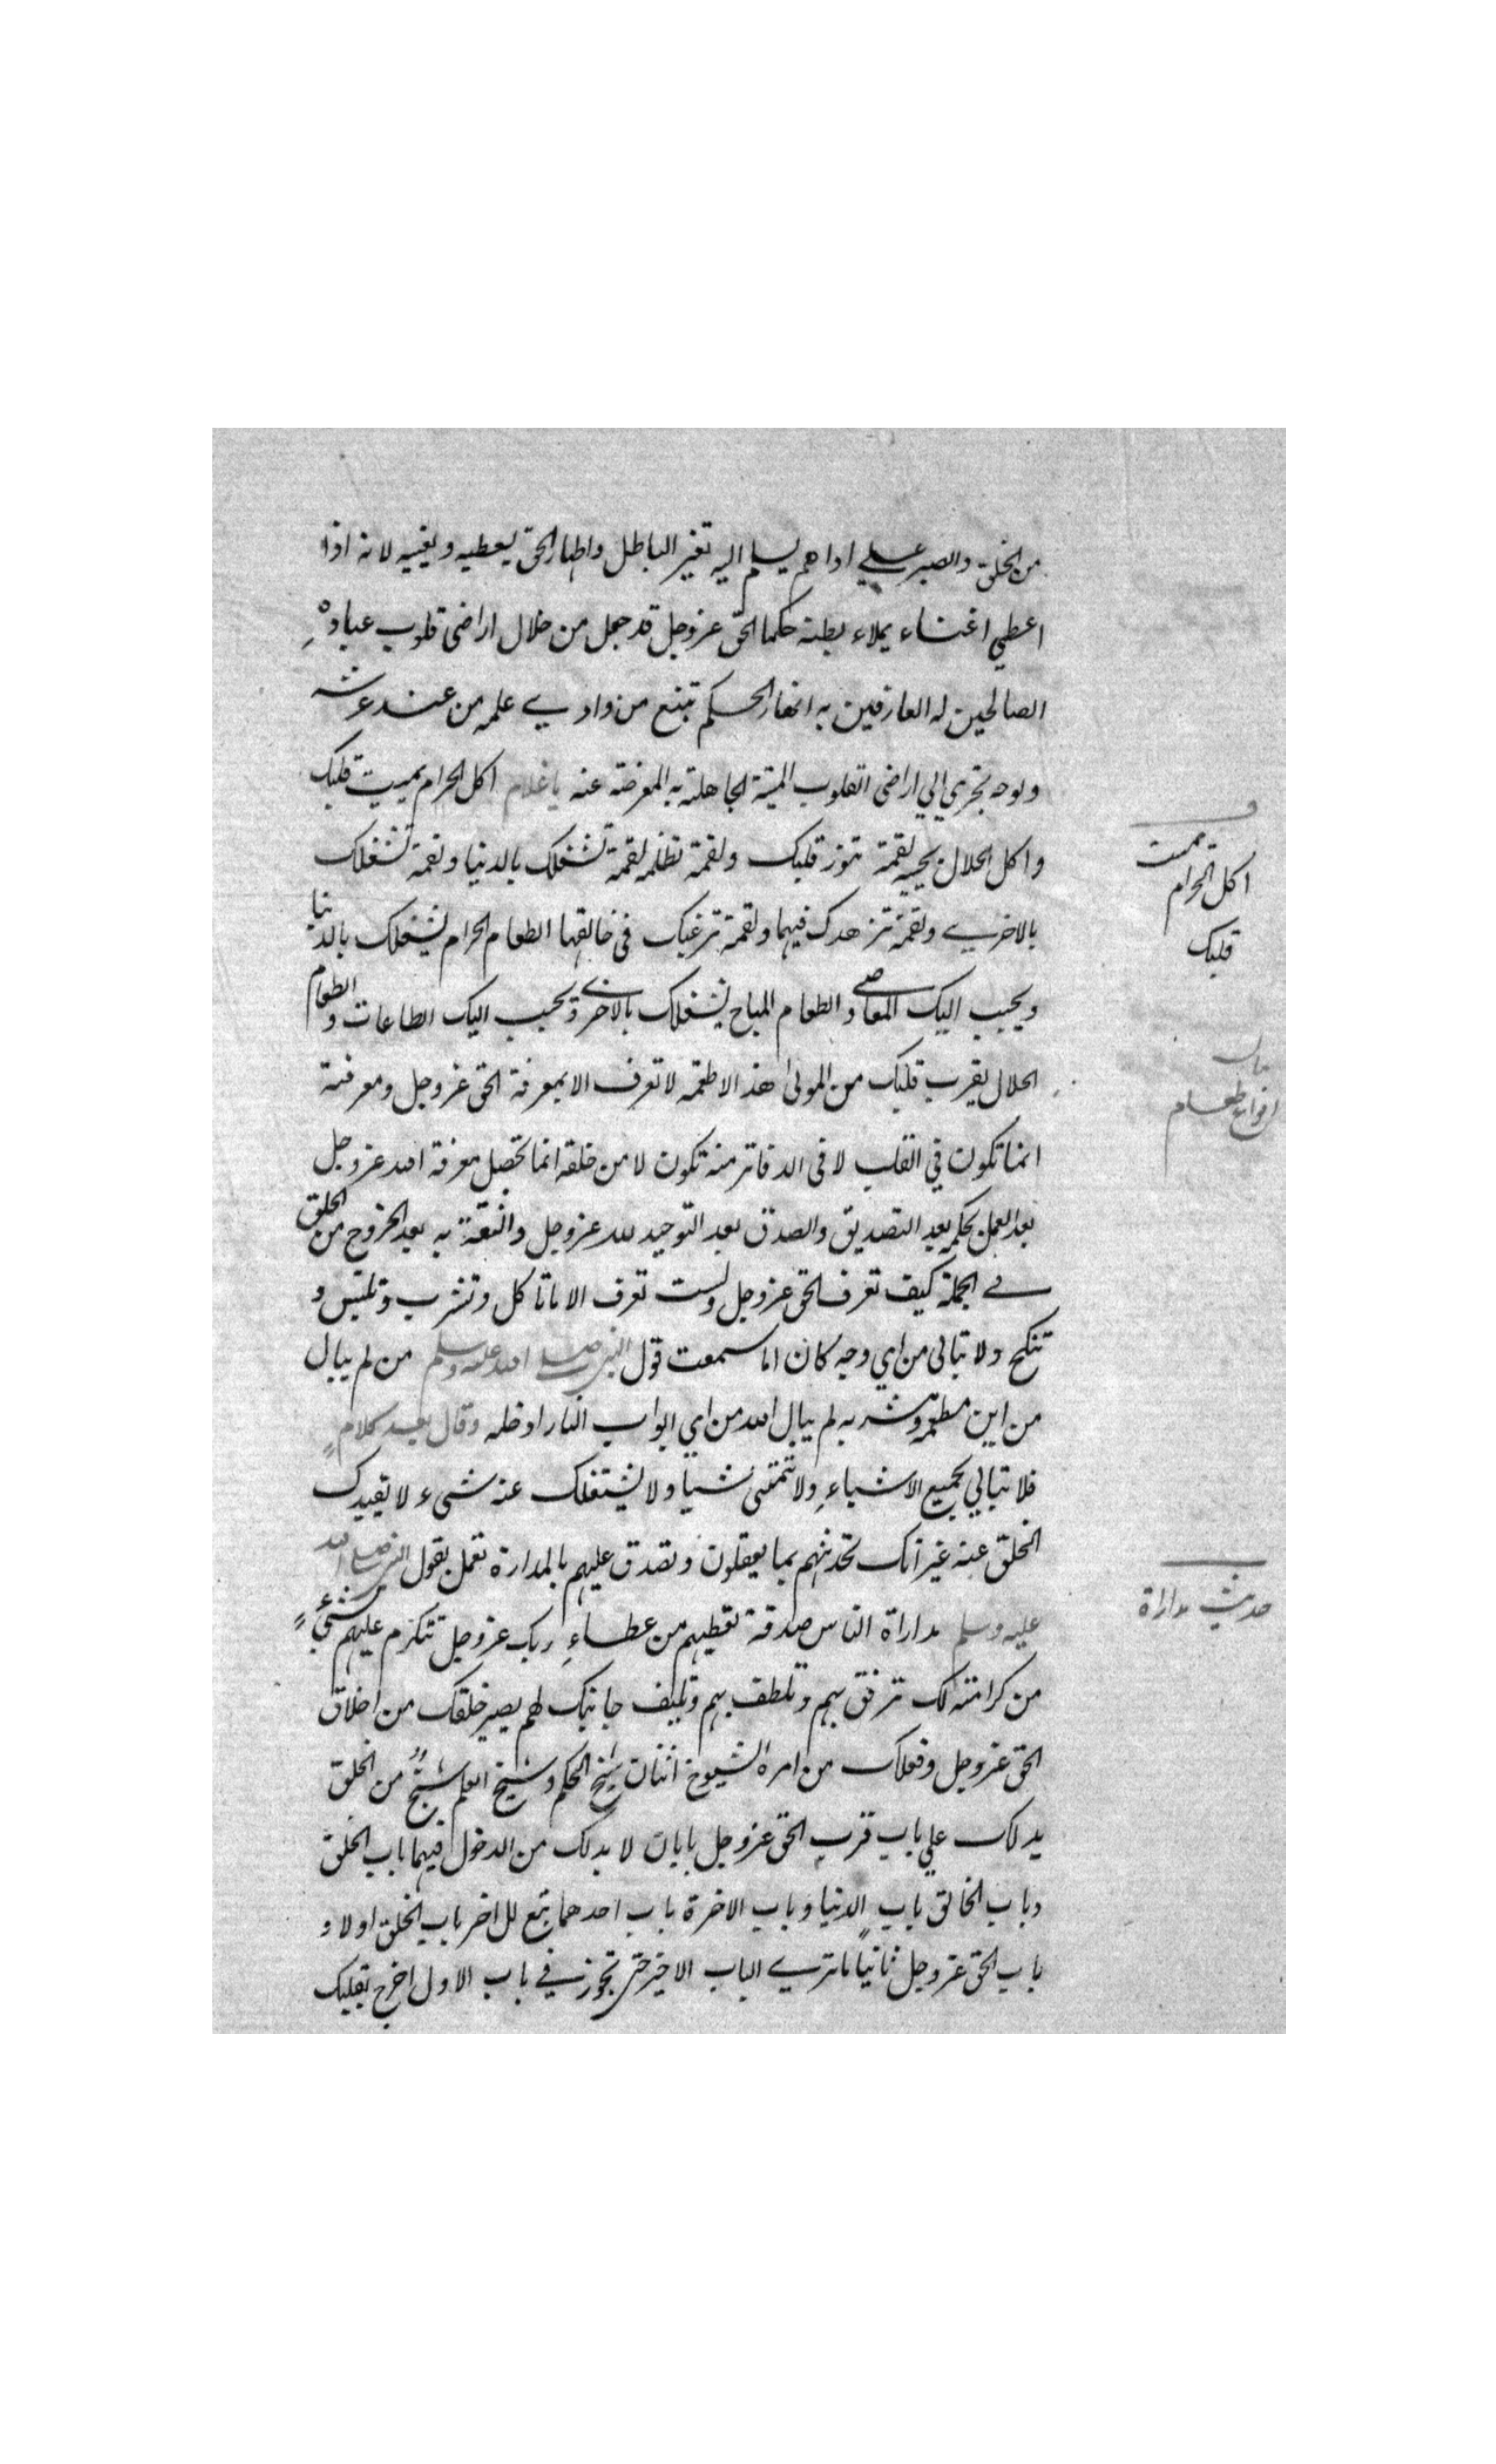 من الخلق والصبر علي اداهم يسلم اليه تغير الباطل واظهار الحق يعطيه ويغنيه لانه اذا
اعطي اغناء يملاء بطنه حكما الحق عز وجل قد جعل من خلال اراضى قلوب عباده
الصالحين له العارفين به انهار الحكم تنبع من وادي علمه من عند عرشه
ولوحه تجري الي اراضى القلوب الميتة الجاهلة به المعرضة عنه يا غلام اكل الحرام يميت قلبك
واكل الحلال يحييه لقمة تنور قلبك ولقمة تظلمه لقمة تشغلك بالدنيا ولقمة تشغلك
بالاخري ولقمة تزهدك فيهما ولقمة ترغبك فى خالقهما الطعام الحرام يشغلك بالدنيا
ويحبب اليك المعاصي والطعام المباح يشغلك بالاخري ويحبب اليك الطاعات والطعام
الحلال يقرب قلبك من المولى هذه الاطعمه لا تعرف الا بمعرفة الحق عز وجل ومعرفته
انما تكون في القلب لا فى الدفاتر منه تكون لا من خلقه انما تحصل معرفة الله عز وجل
بعد العمل بحكمه بعد التصديق والصدق بعد التوحيد لله عز وجل والثقة به بعد الخروج من الخلق
في الجملة كيف تعرف الحق عز وجل ولست تعرف الا ما تاكل وتشرب وتلبس و
تنكح ولا تبالى من اي وجه كان اما سمعت قول النبي صلى الله عليه وسلم من لم يبال
من اين مطعمه ومشربه لم يبال الله من اي ابواب النار ادخله وقال بعد كلام
فلا تبالي بجميع الاشياء ولا تتمنى شيا ولا يشتغلك عنه شىء لا يقيدك
الخلق عنه غير انك تحدثهم بما يعقلون وتصدق عليهم بالمدارة تعمل بقول النبي صلى الله
عليه وسلم مداراة الناس صدقة تعطيهم من عطاء ربك عز وجل تتكرم عليهم بشئ
من كرامته لك ترفق بهم وتلطف بهم وتليف جانبك لهم يصير خلقك من اخلاق
الحق عز وجل وفعلك من امره الشيوخ اثنان شيخ الحكم وشيخ العلم شيخ من الخلق
يدلك علي باب قرب الحق عز وجل بابان لا بد لك من الدخول فيهما باب الخلق
وباب الخالق باب الدنيا وباب الاخرة باب احدهما تبع للاخر باب الخلق اولا و
باب الحق عز وجل ثانيا ما تري الباب الاخير حتى تجوز في باب الاول اخرج بقلبك
يميت
اكل الحرام
قلبك
بيان
انواع طعام
حديث مداراة